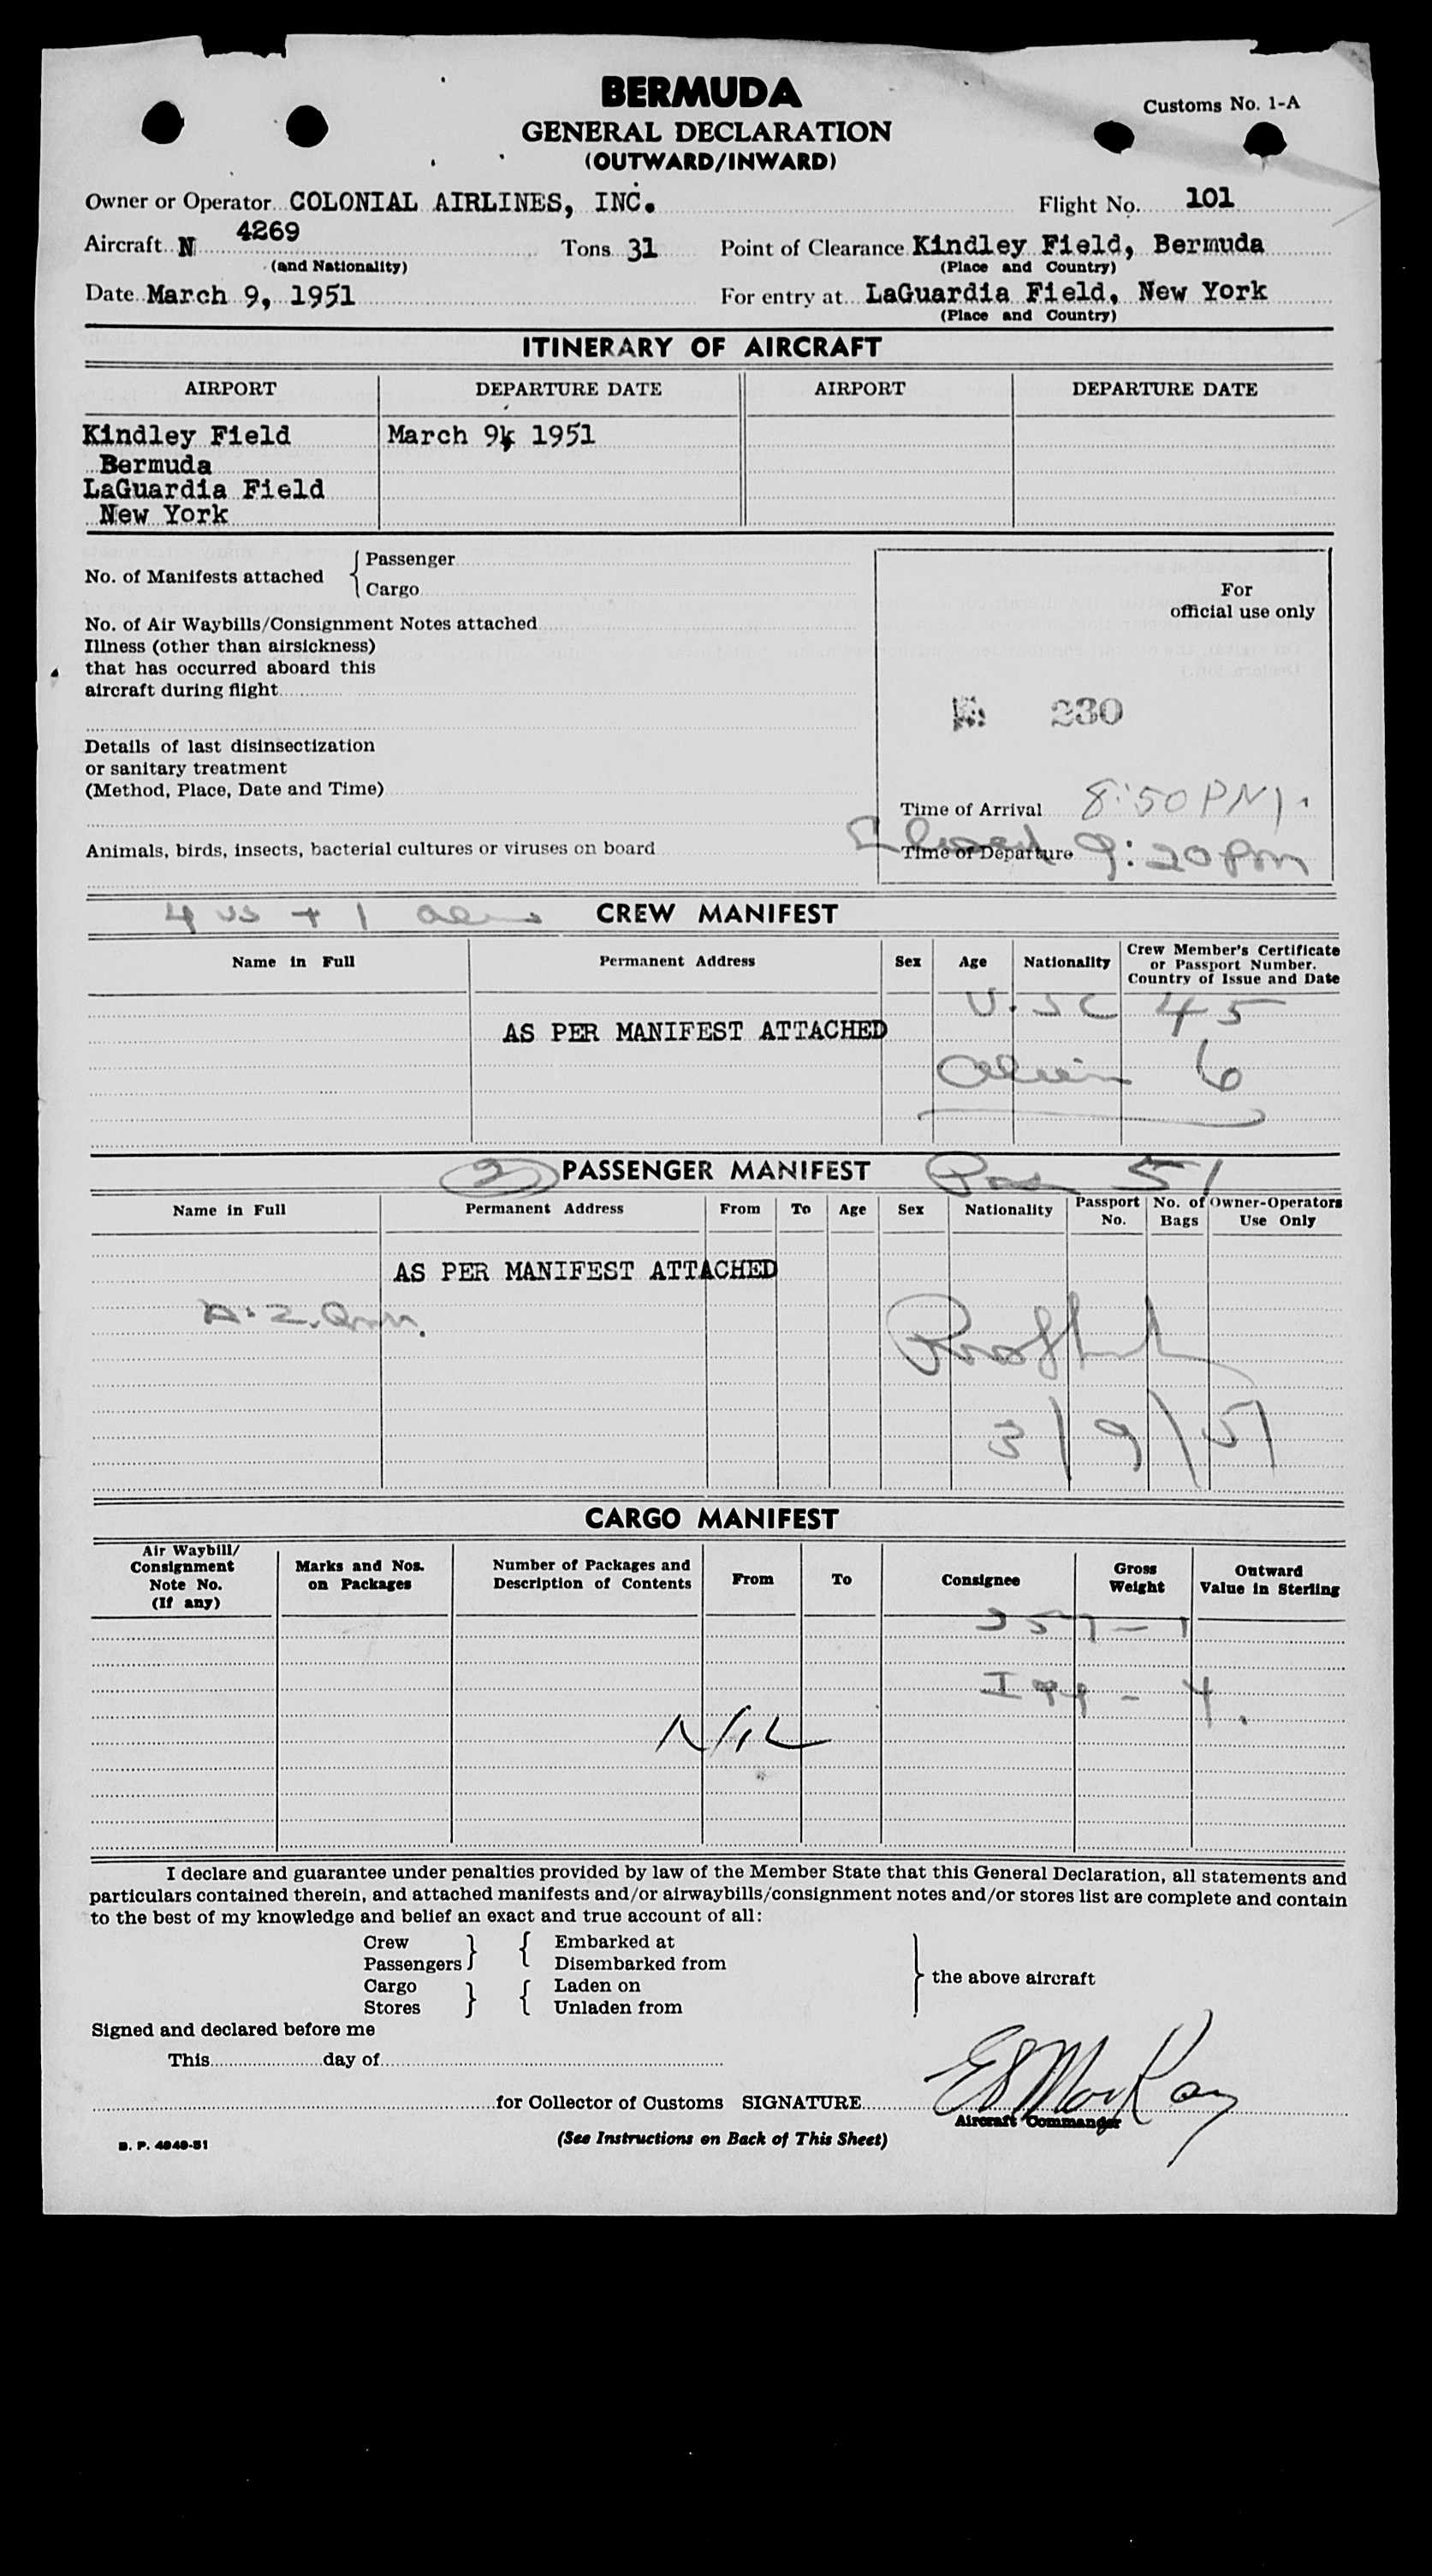 BERMUDA
Customs No. 1-A
GENERAL DECLARATION
(OUTWARD/INWARD)
Owner or Operator COLONIAL AIRLINES, INC. Flight No. 101
Aircraft N 4269 Tons 31 Point of Clearance Kindley Field, Bermuda
(and Nationality) (Place and Country)
Date March 9, 1951 For entry at LaGuardia Field, New York
(Place and Country)
ITINERARY OF AIRCRAFT
AIRPORT DEPARTURE DATE AIRPORT DEPARTURE DATE
Kindley Field March 9, 1951
Bermuda
LaGuardia Field
New York
No. of Manifests attached { Passenger
Cargo
For
official use only
No. of Air Waybills/Consignment Notes attached
Illness (other than airsickness)
that has occurred aboard this
aircraft during flight
230
Details of last disinsectization
or sanitary treatment
(Method, Place, Date and Time)
Time of Arrival 8:50 PM
Closed
Animals, birds, insects, bacterial cultures or viruses on board
Time of Departure 9:20 Pm
4 US + 1 CREW MANIFEST
Name in Full Permanent Address Sex Age Nationality Crew Member's Certificate
or Passport Number.
Country of Issue and Date
U.S.C 45
AS PER MANIFEST ATTACHED
Alien 6
2 PASSENGER MANIFEST Pax 51
Name in Full Permanent Address From To Age Sex Nationality Passport No. No. of Bags Owner-Operators Use Only
AS PER MANIFEST ATTACHED
3/9/51
CARGO MANIFEST
Air Waybill/
Consignment
Note No.
(If any)
Marks and Nos.
on Packages
Number of Packages and
Description of Contents
From To Consignee
Gross
Weight
Outward
Value in Sterling
I 99 - 4.
NIL
I declare and guarantee under penalties provided by law of the Member State that this General Declaration, all statements and
particulars contained therein, and attached manifests and/or airwaybills/consignment notes and/or stores list are complete and contain
to the best of my knowledge and belief an exact and true account of all:
Crew } { Embarked at
Passengers Disembarked from
} the above aircraft
Cargo } { Laden on
Stores Unladen from
Signed and declared before me
This day of
for Collector of Customs SIGNATURE E S MacKay
Aircraft Commander
B. P. 4949-51
(See Instructions on Back of This Sheet)